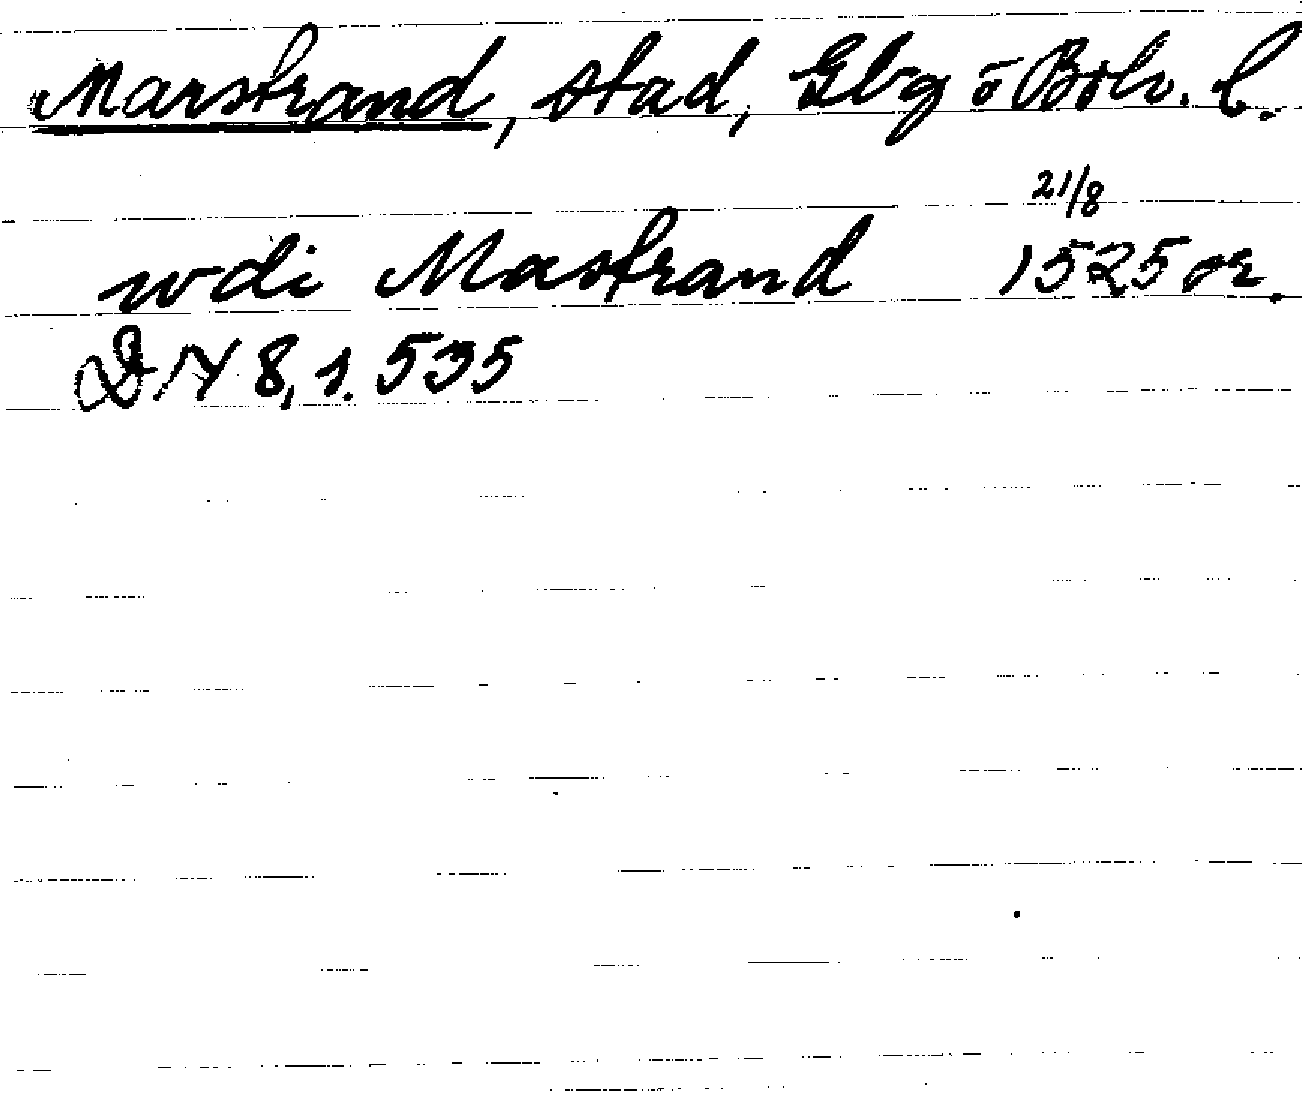 Marstrand, stad, Gbg o Bohv. l.
21/8
wdi Mastrand 1525 or.
DN 8, s. 535